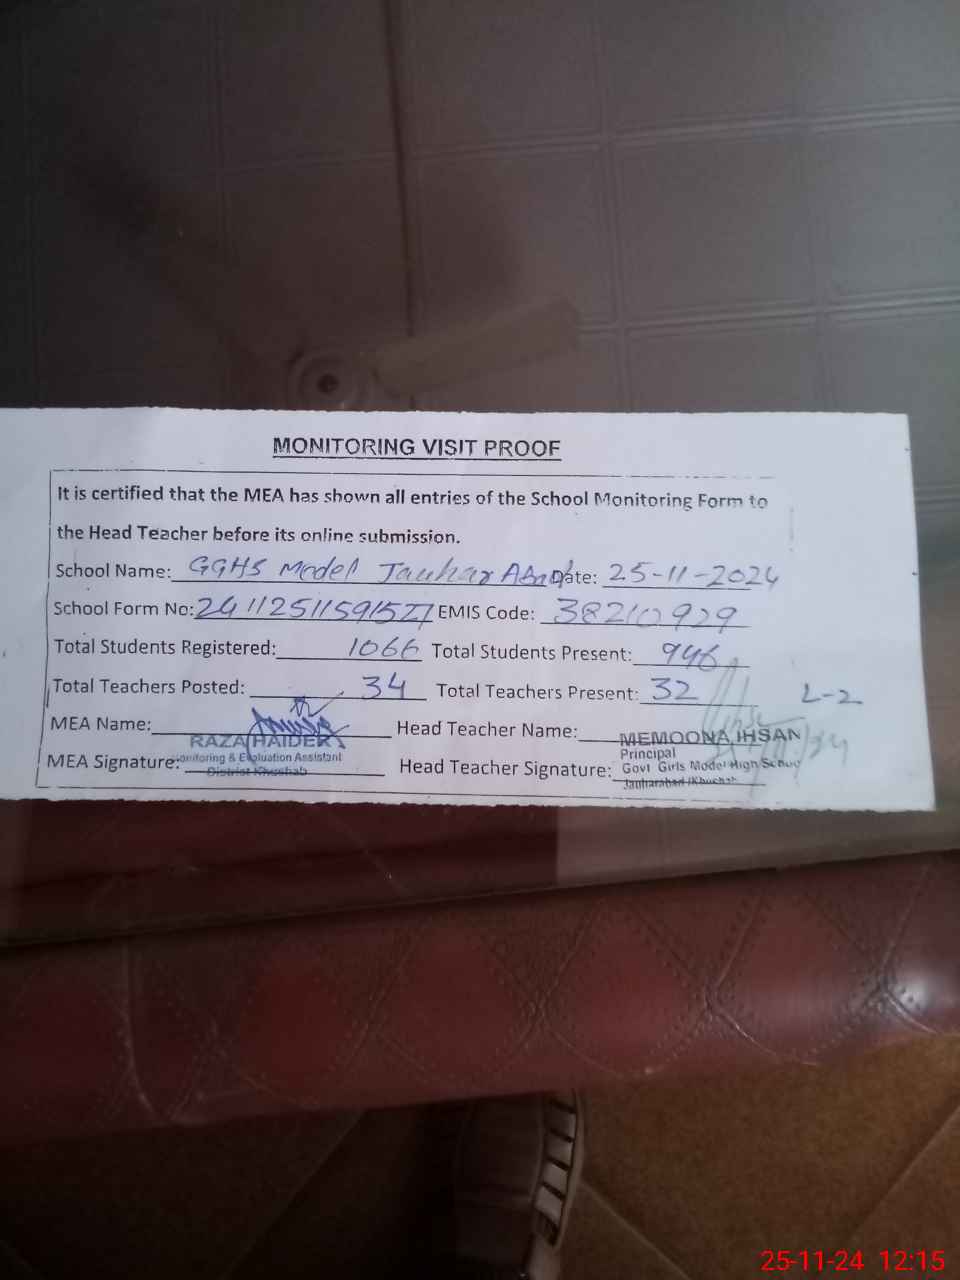 MONITORING VISIT PROOF
It is certified that the MEA has shown all entries of the School Monitoring Form to
the Head Teacher before its online submission.
School Name: GGHS Model Jauhar Abad Date: 25-11-2024
School Form No: EMIS Code: 38210929
Total Students Registered: 1066 Total Students Present: 946
Total Teachers Posted: 34 Total Teachers Present: 32 L-2
MEA Name: Head Teacher Name:
RAZA HAIDER MEMOONA IHSAN
Monitoring & Evaluation Assistant Principal
MEA Signature: District Khushab Head Teacher Signature: Govt Girls Model High School
Jauharabad (Khushab
25-11-24 12:15